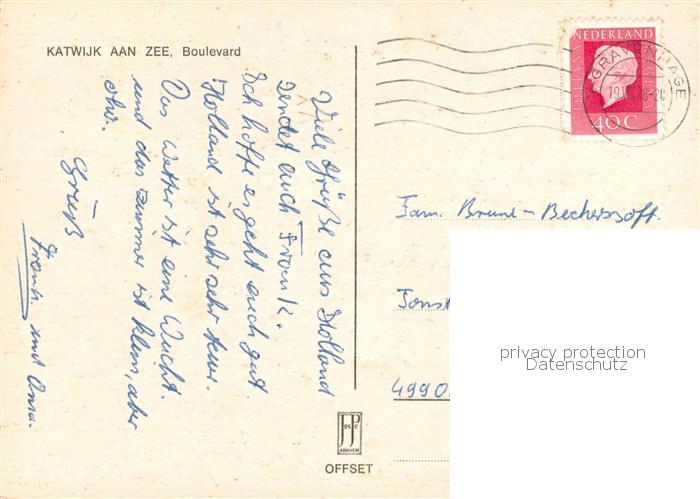 KATWIJK AAN ZEE, Boulevard
Viele Grüße aus Holland
sendet euch Frank.
Ich hoffe es geht euch gut.
Holland ist sehr sehr teuer.
Das Wetter ist eine Wucht.
und das zimmer ist klein, aber
Gruß
Frank und
NEDERLAND
40C
GRAVENHAGE
Fam. Brune-
4990
privacy protection
Datenschutz
JosPé
ARNHEM
OFFSET